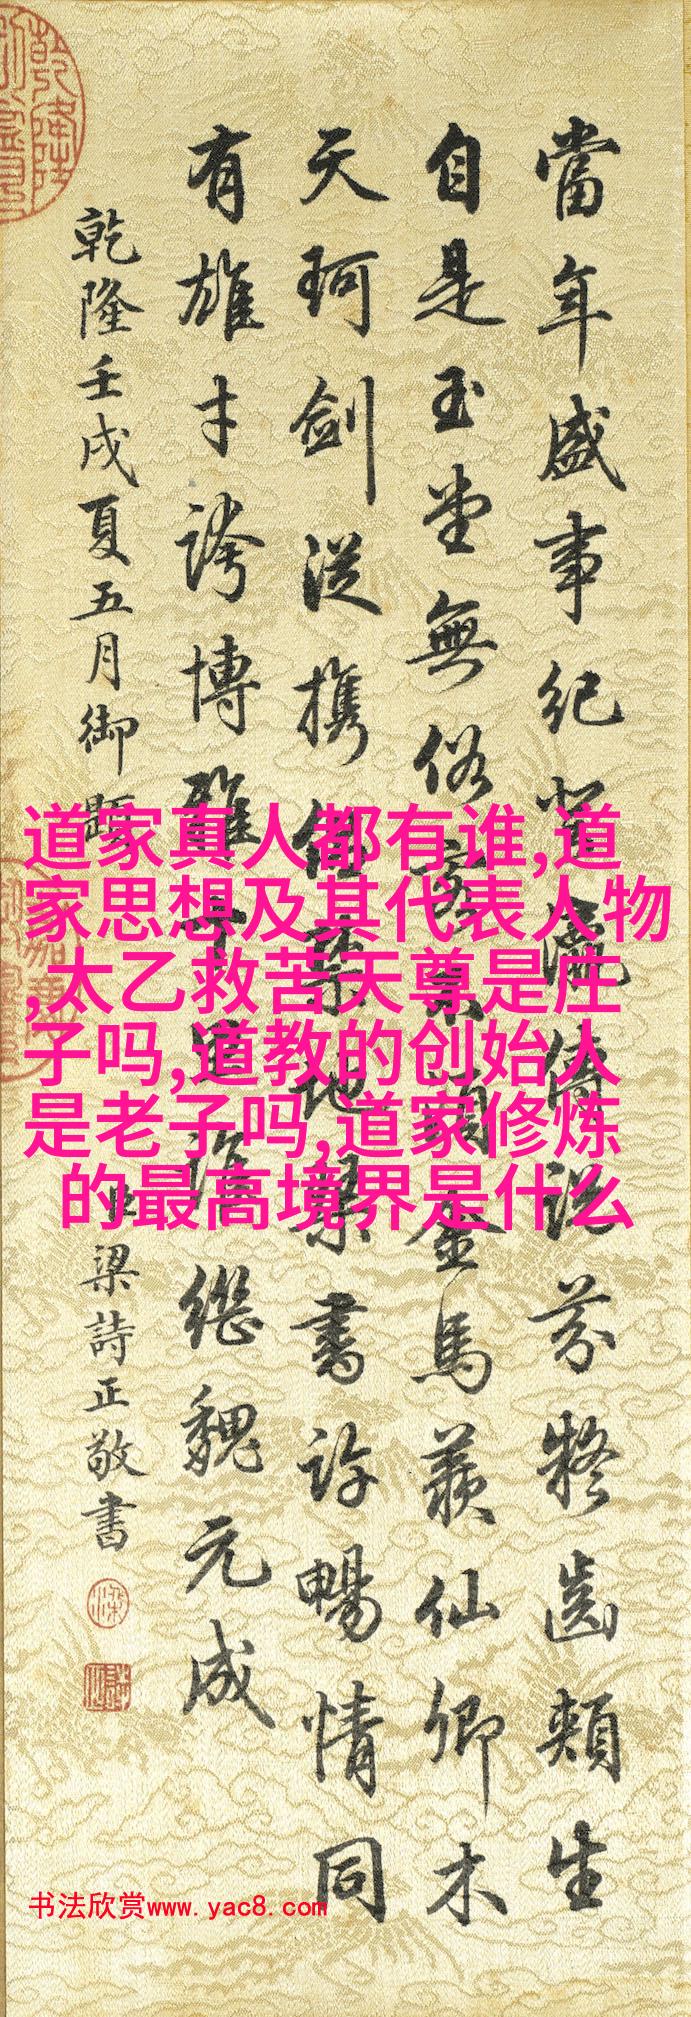 當年盛事紀登瀛傳説芬齒頰生
自是玉堂無俗客須金馬羨仙卿木
天珂劍從携地琴書許暢情同
有雄才誇博雅誰繼魏元成
乾隆壬戌夏五月御題
臣梁詩正敬書
道家真人都有谁,道
家思想及其代表人物
,太乙救苦天尊是庄
子吗,道教的创始人
是老子吗,道家修炼
的最高境界是什么
书法欣赏www.yac8.com